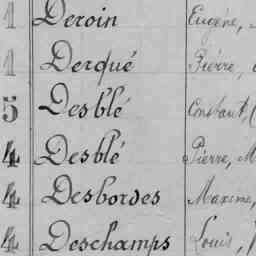 1 Deroin Eugène,
1 Derqué Pierre,
5 Desblé Constant,
4 Desblé Pierre, M
4 Desbordes Maxime,
4 Deschamps Louis,